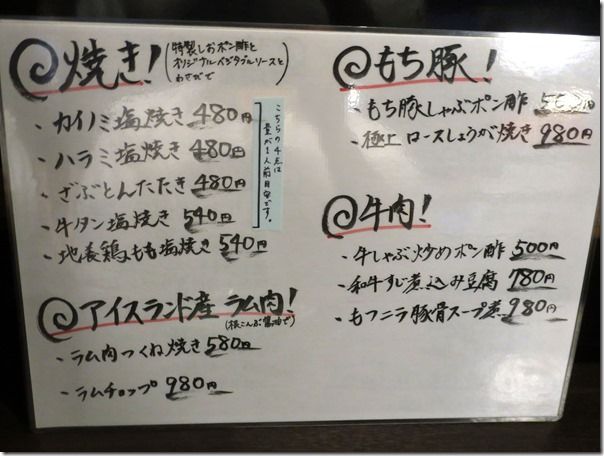 焼き!
(特製しおポン酢と
オリジナルベジタブルソースと
わさびで)
・カイノミ塩焼き 480円
・ハラミ塩焼き 480円
・ざぶとんたたき 480円
・牛タン塩焼き 540円
・地養鶏もも塩焼き 540円
こちらの4点は
量が1人前目安です。
アイスランド産 ラム肉!
(根こんぶ醤油で)
・ラム肉つくね焼き 580円
・ラムチョップ 980円
もち豚!
・もち豚しゃぶポン酢
・極上ロースしょうが焼き 980円
牛肉!
・牛しゃぶ炒めポン酢 500円
・和牛すじ煮込み豆腐 780円
・もつニラ豚骨スープ煮 980円